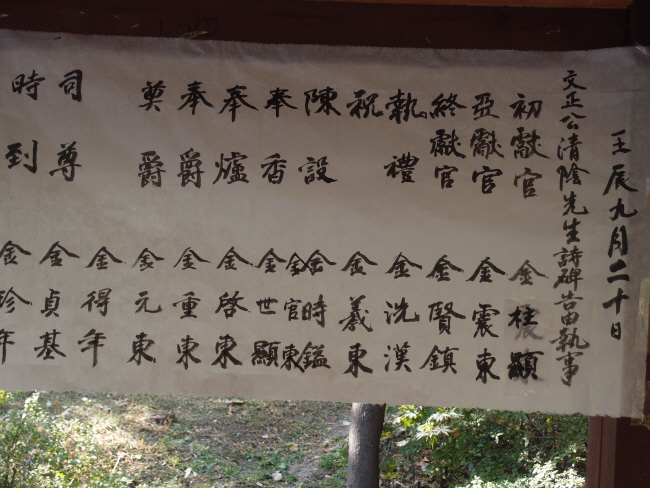 壬辰九月二十日
文正公清陰先生詩碑告由執事
初獻官 金柱顯
亞獻官 金震東
終獻官 金賢鎮
執禮 金洗漢
祝 金羲東
陳設 金時鑑
金官東
奉香 金世顯
奉爐 金啓東
奉爵 金重東
奠爵 金元東
司尊 金得年
金貞基
時到 金珍年